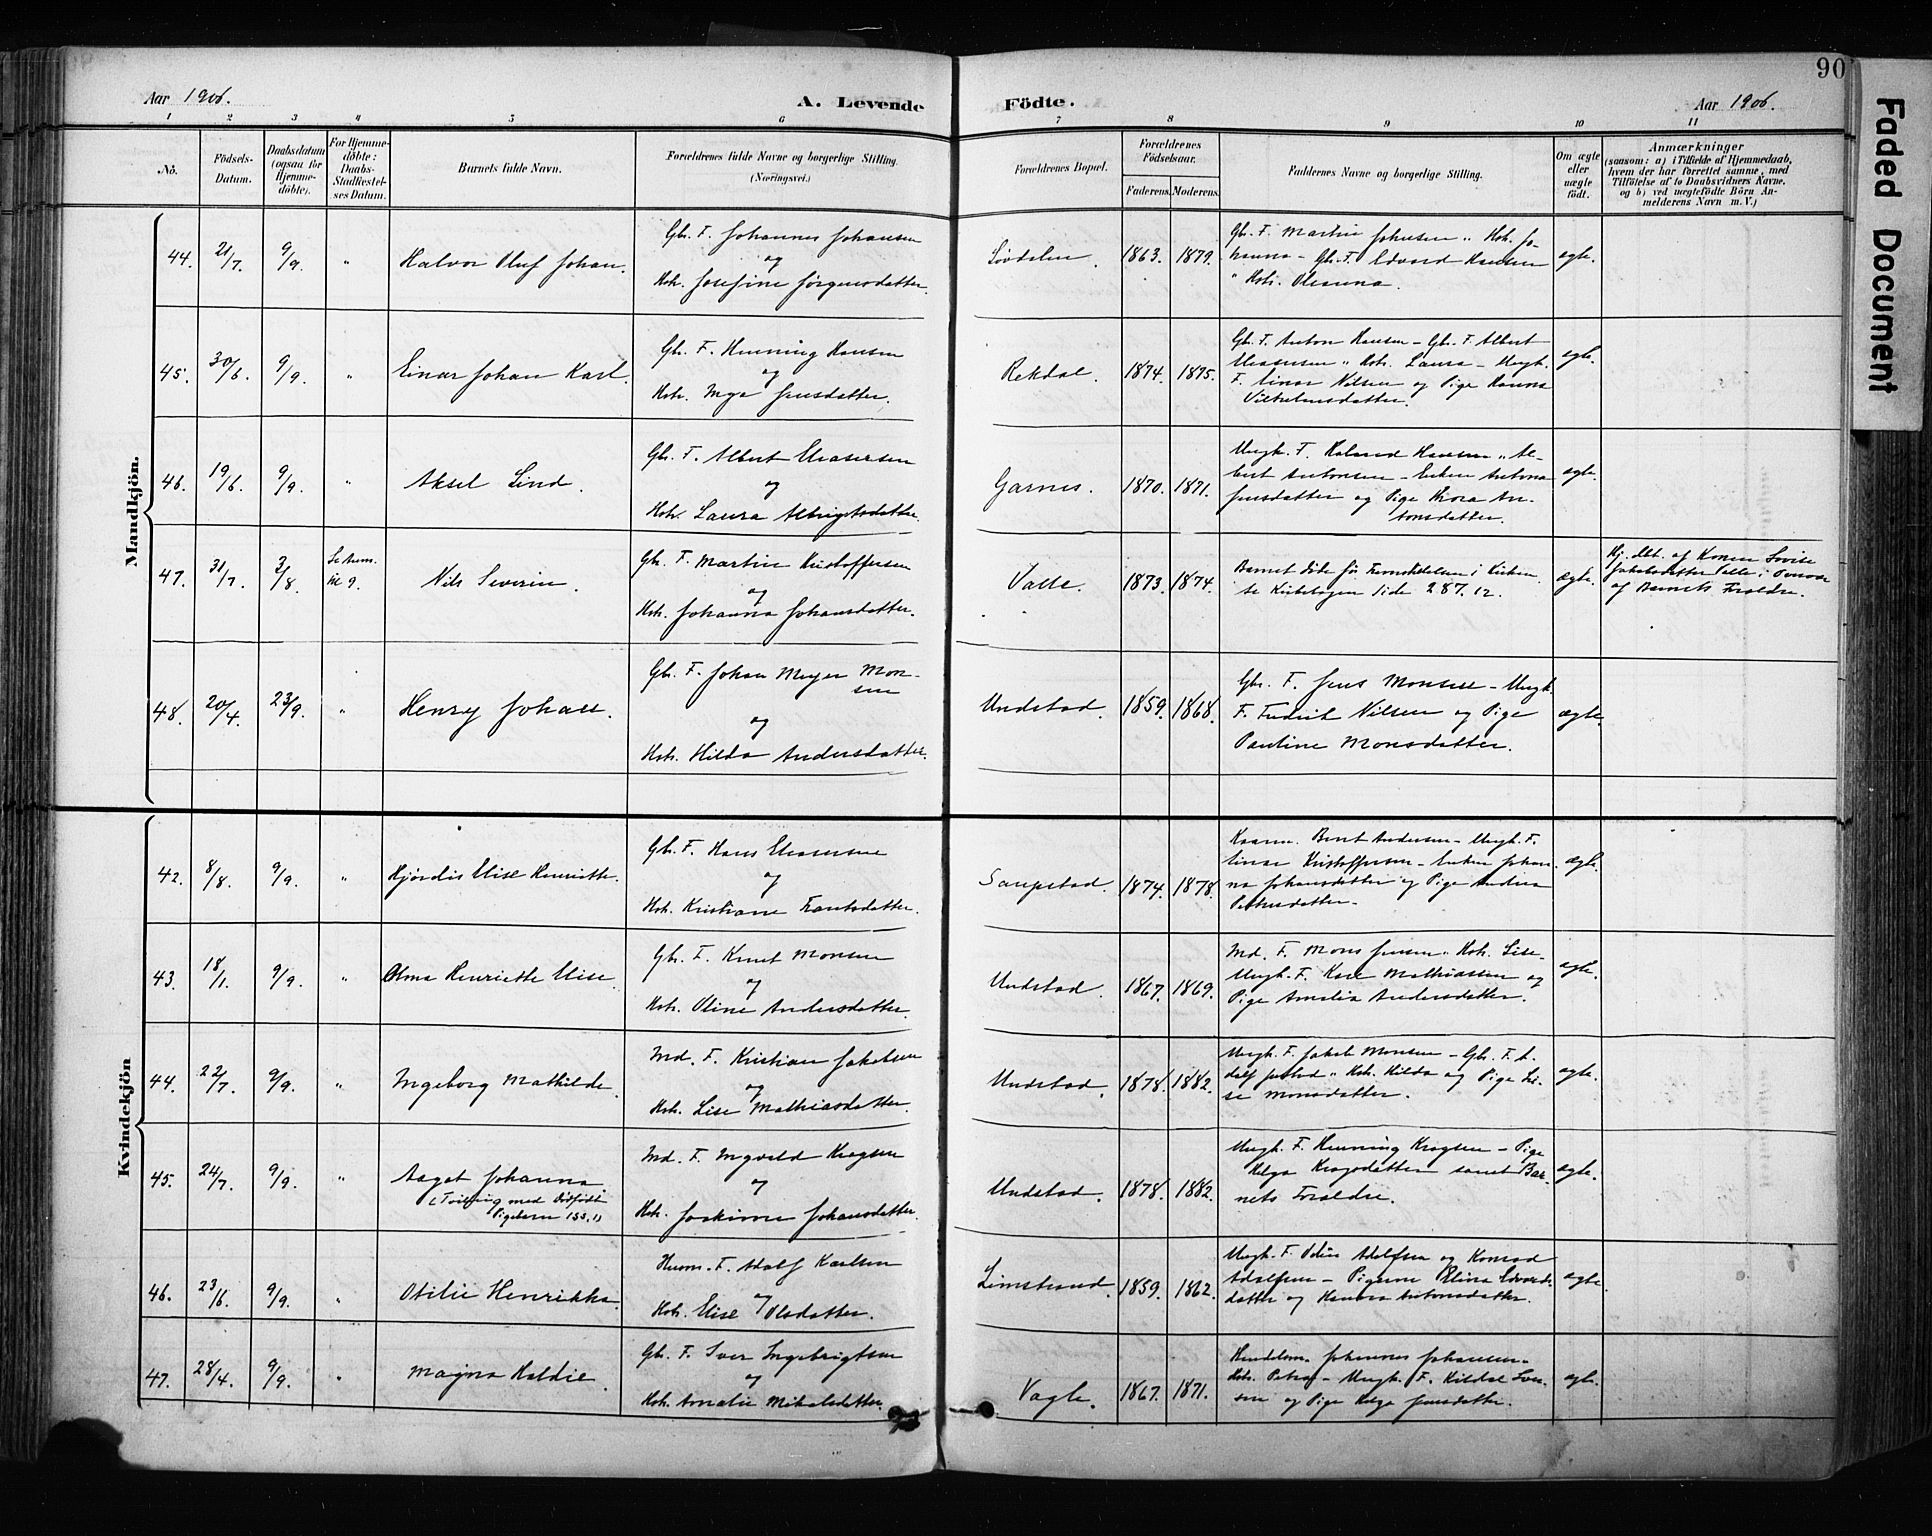 90
Faded Document
Aar 1906. A. Levende
Födte. Aar 1906.
1 2 3 4 5 6 7 8 9 10 11
No.
Födsels-
Datum.
Daabsdatum
(ogsaa for
Hjemme-
döbte).
For Hjemme-
døbte:
Daabs-
Stadfæstel-
ses Datum.
Barnets fulde Navn.
Forældrenes fulde Navne og borgerlige Stilling.
(Næringsvei.)
Forældrenes Bopæl.
Forældrenes
Födselsaar.
Faderens. Moderens.
Faddernes Navne og borgerlige Stilling.
Om ægte
eller
uægte
födt.
Anmærkninger
(saasom: a) i Tilfælde af Hjemmedaab,
hvem der har forrettet samme, med
Tilföielse af to Daabsvidners Navne,
og b) ved uægtefödte Börn An-
melderens Navn m. V.)
Mandkjön.
44. 21/7. 9/9. " Halvor Oluf Johan.
Gbr. F. Johannes Johansen
og
Hstr. Josefine Jörgensdatter.
Løvdalen. 1863. 1879.
Gbr. F. Martin Johnsen " Hstr. Jo-
hanna - Gbr. F. Edvard Hansen
" Hstr. Oleanna.
ægte.
45. 30/6. 9/9. " Einar Johan Karl.
Gbr. F. Henning Hansen
og
Hstr. Inga Jensdatter.
Rekdal. 1874. 1875.
Gbr. F. Anton Hansen - Gbr. F. Albert
Eliasersen " Hstr. Laura - Ungk.
F. Einar Nilsen og Pige Hanna
Vilhelmsdatter.
ægte.
46. 19/6. 9/9. " Aksel Lind.
Gbr. F. Albert Eliasersen
og
Hstr. Laura Albrigtsdatter.
Garnes. 1870. 1871.
Ungk. F. Hansen " Al-
bert Antonsen - Enken Antona
Jensdatter og Pige An-
tonsdatter.
ægte.
47. 31/7. 3/8. Se Anm.
til 9.
Nils Severin.
Gbr. F. Martin Kristoffersen
og
Hstr. Johanna Johansdatter.
Valle. 1873. 1874.
Barnet döde för Fremstillelsen i Kirken,
se Kirkebogen Side 287.12.
ægte.
Hj. dbt. af Konen Lovise
Jakobsdatter Valle i Overvær
af Barnets Forældre.
48. 20/4. 23/9. " Henry Johan.
Gbr. F. Johan Meyer Mon-
sen
og
Hstr. Hilda Andersdatter.
Undstad. 1859. 1868.
Gbr. F. Jens Monsen - Ungk.
F. Fredrik Nilsen og Pige
Pauline Monsdatter.
ægte.
Kvindekjön
42. 8/8. 9/9. " Hjördis Elise Henriette.
Gbr. F. Hans Eliasersen
og
Hstr. Kristiane Frantsdatter.
Saupstad. 1874. 1878.
Kaarm. Bernt Andersen - Ungk. F.
Einar Kristoffersen - Enken Johan-
na Johansdatter og Pige Andrea
Petersdatter.
ægte.
43. 18/1. 9/9. " Alma Henriette Elise.
Gbr. F. Knut Monsen
og
Hstr. Oline Andersdatter.
Undstad. 1867. 1869.
Md. F. Mons Jensen " Hstr. Lise -
Ungk. F. Karl Mathiassen og
Pige Amalia Andersdatter.
ægte.
44. 22/7. 9/9. " Ingeborg Mathilde.
Md. F. Kristian Jakobsen
og
Hstr. Lise Mathiasdatter.
Undstad. 1878. 1882.
Ungk. F. Jakob Monsen - Gbr. F. A-
dolf " Hstr. Hilda og Pige Li-
se Monsdatter.
ægte.
45. 24/7. 9/9. " Aagot Johanna
(Tvilling med Dödfödt
Pigebarn 155.1)
Md. F. Ingvald Krogsen
og
Hstr. Joakime Johansdatter.
Undstad. 1878. 1882.
Ungk. F. Henning Krogsen - Pige
Helga Krogsdatter samt Bar-
nets Forældre.
ægte.
46. 23/6. 9/9. " Otilie Henrikka.
Husm. F. Adolf Karlsen
og
Hstr. Elise Olsdatter.
Limstrand. 1859. 1862.
Ungk. F. Odin Adolfsen og Konrad
Adolfsen - Pigerne Elina Edvards-
datter og Hanna Antonsdatter.
ægte
47. 28/4. 9/9. " Magna Haldis.
Gbr. F. Iver Ingebrigtsen
og
Hstr. Amalie Mikalsdatter.
Vagle. 1867. 1871.
Handelsm. Johannes Johansen -
Hstr. Petra - Ungk. F. Hildal Iver-
sen og Pige Helga Jensdatter.
ægte.